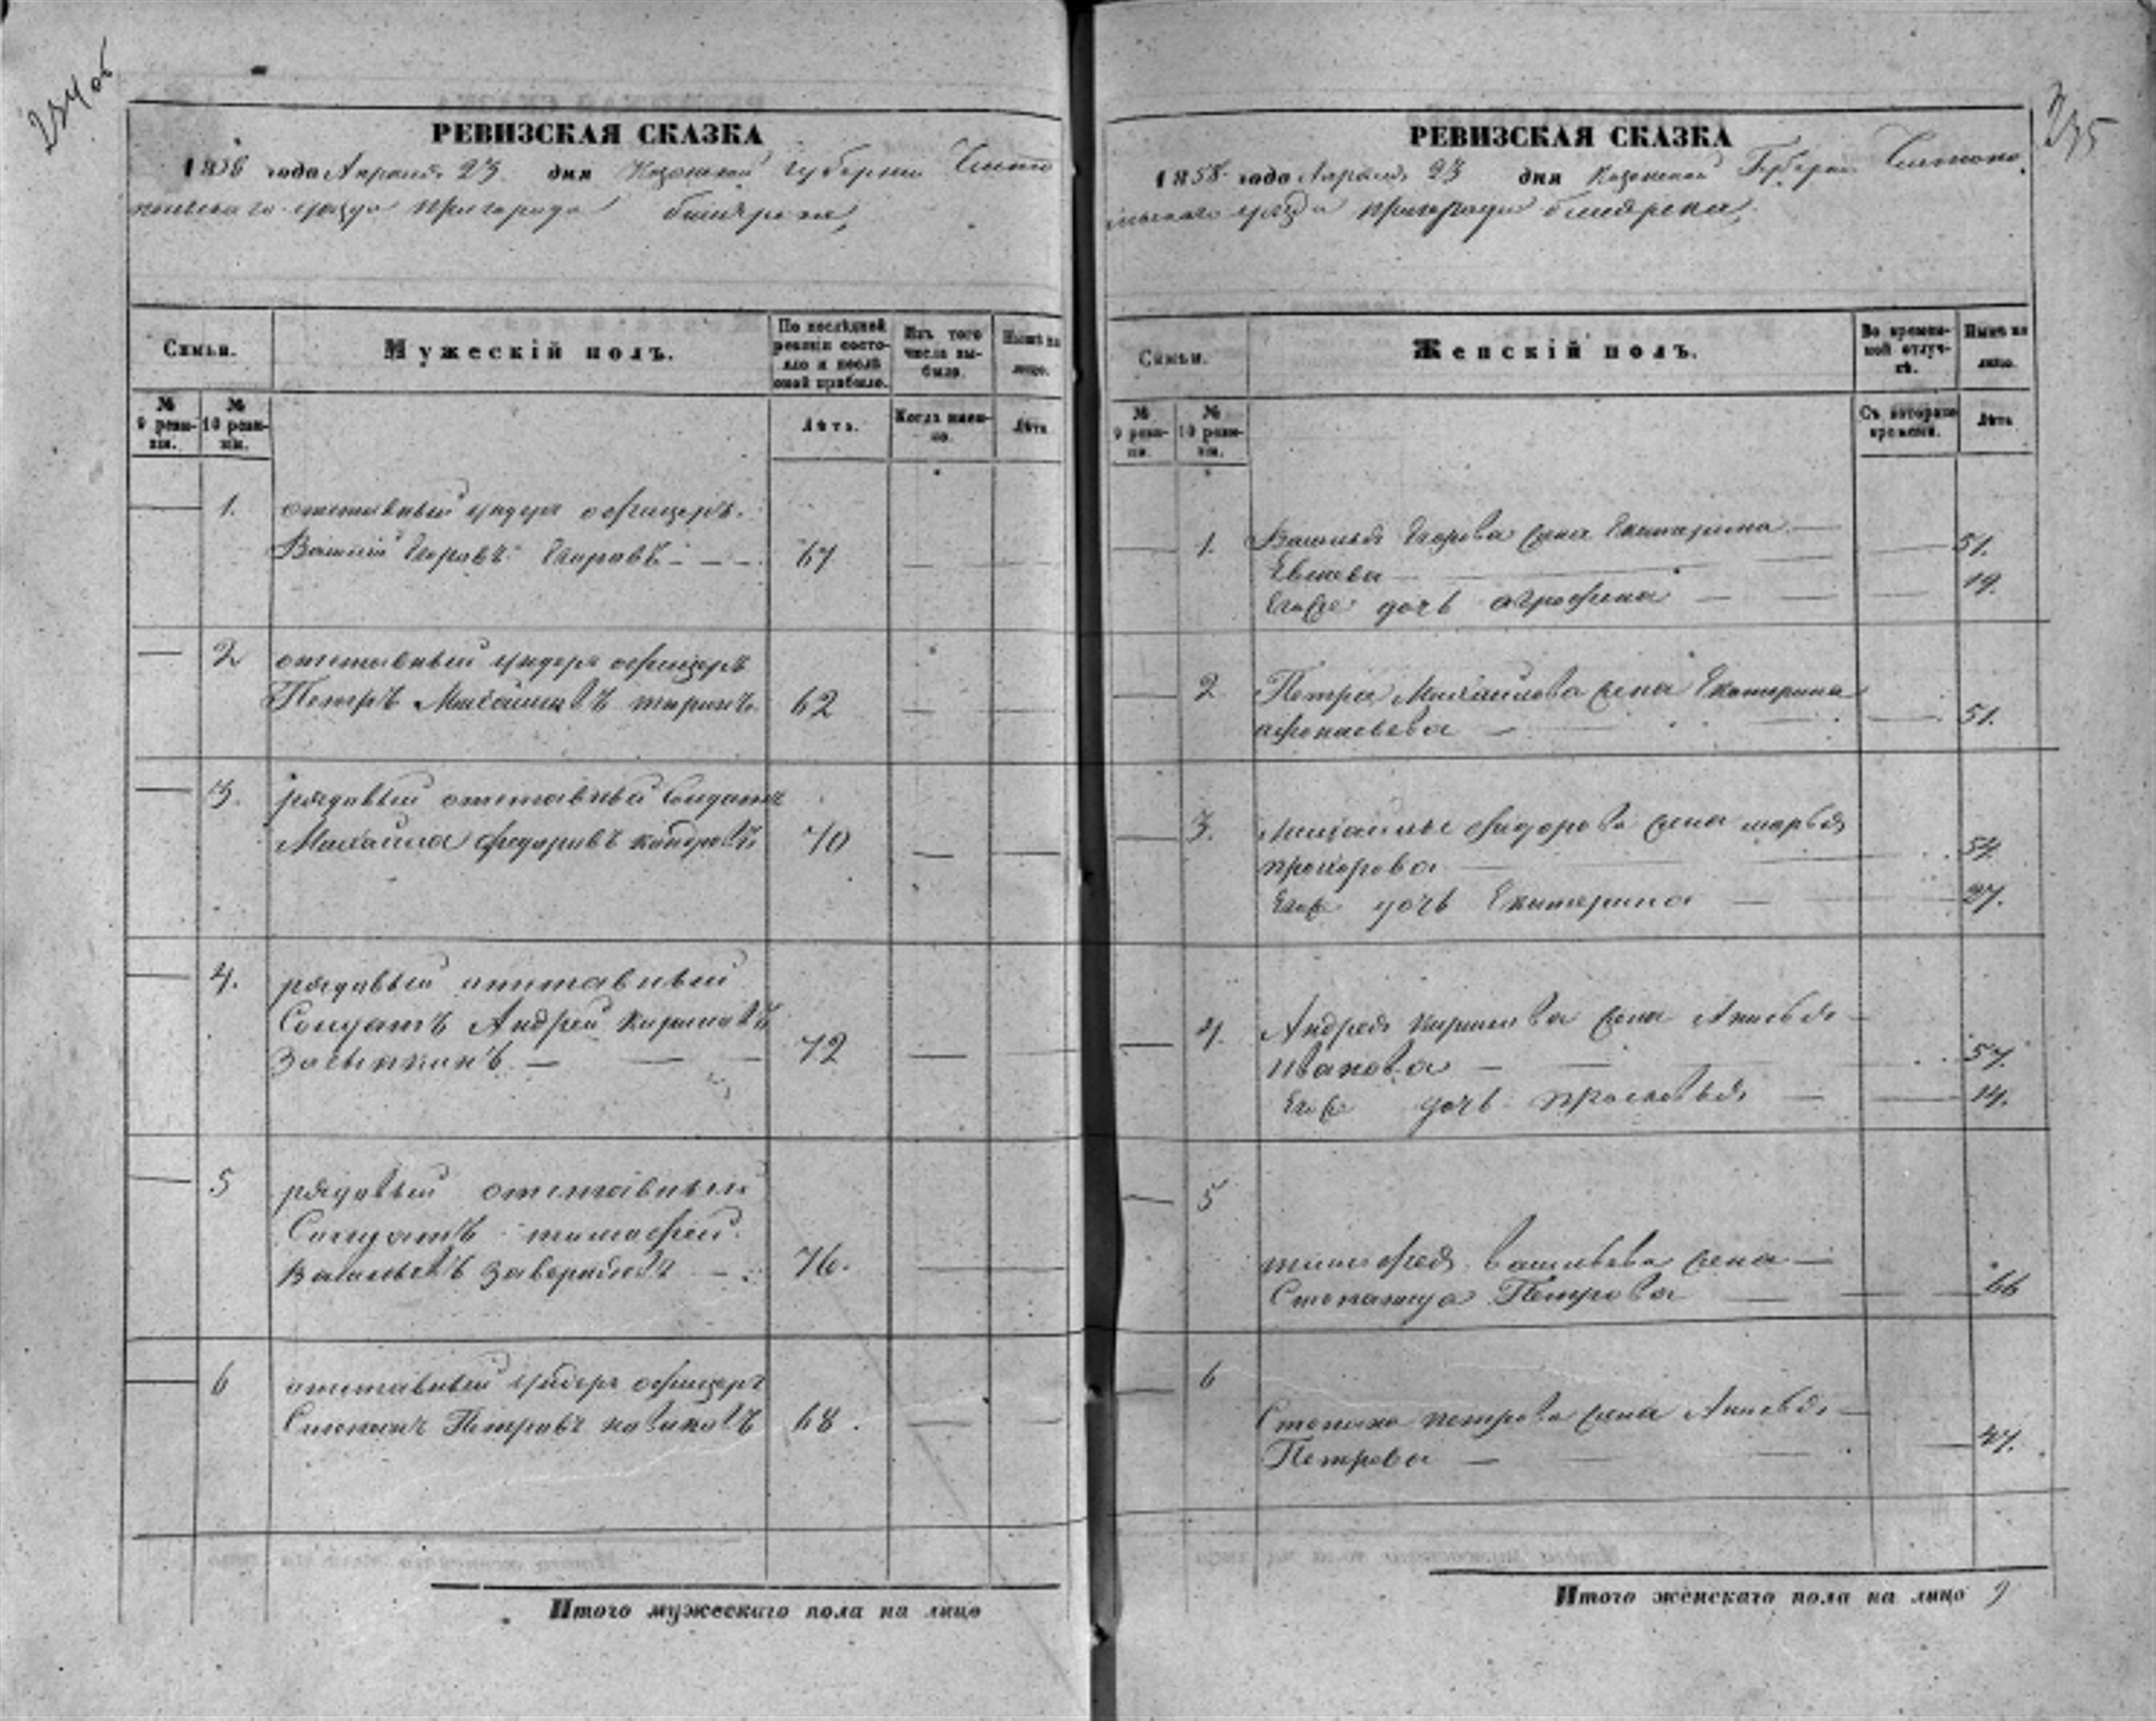 234 об
РЕВИЗСКАЯ СКАЗКА
1858 года Апреля 23 дня Казанской губерніи Чисто
польскаго уезда пригорода билярска,
Семьи.
Мужескій полъ.
По послѣдней ревизіи состояло и послѣ оной прибыло.
Изъ того числа выбыло.
Нынѣ на лицо.
№ 9 ревизіи.
№ 10 ревизіи.
Лѣта.
Когда именно.
Лѣта
1. отставный ундеръ офицеръ.
Василій Егоровъ Егоровъ 67
2 отставный ундеръ офицеръ
Петръ Михайловъ 62
3. рядовый отставный Солдатъ
Михаила федоровъ 70
4. рядовый отставный
Солдатъ Андрей кириловъ
Засыпкинъ 72
5 рядовый отставный
Солдатъ тимофей
Васильевъ 76.
6 отставный ундеръ офицеръ
Степанъ Петровъ новиковъ 68.
Итого мужескаго пола на лицо
235
РЕВИЗСКАЯ СКАЗКА
1858 года Апреля 23 дня Казанской Губерніи Чистопо
льскаго уезда пригорода билярска,
Семьи.
Женскій полъ.
Во временной отлучкѣ.
Нынѣ на лицо.
№ 9 ревизіи.
№ 10 ревизіи.
Съ котораго времени.
Лѣта
1. Василья Егорова жена Екатерина 51.
Егоже дочь агрофена 19.
2 Петра Михайлова жена Екатерина
афонасьева 51.
3. Михайлы федорова жена марья
прохорова 54
Егоже дочь Екатерина 27.
4. Андрея кирилова жена Анисья
Иванова 57.
Егоже дочь прасковья 14.
5
тимофея васильева жена
Степанида Петрова 66
6
Степана петрова жена Анисья
Петрова 47.
Итого женскаго пола на лицо 9